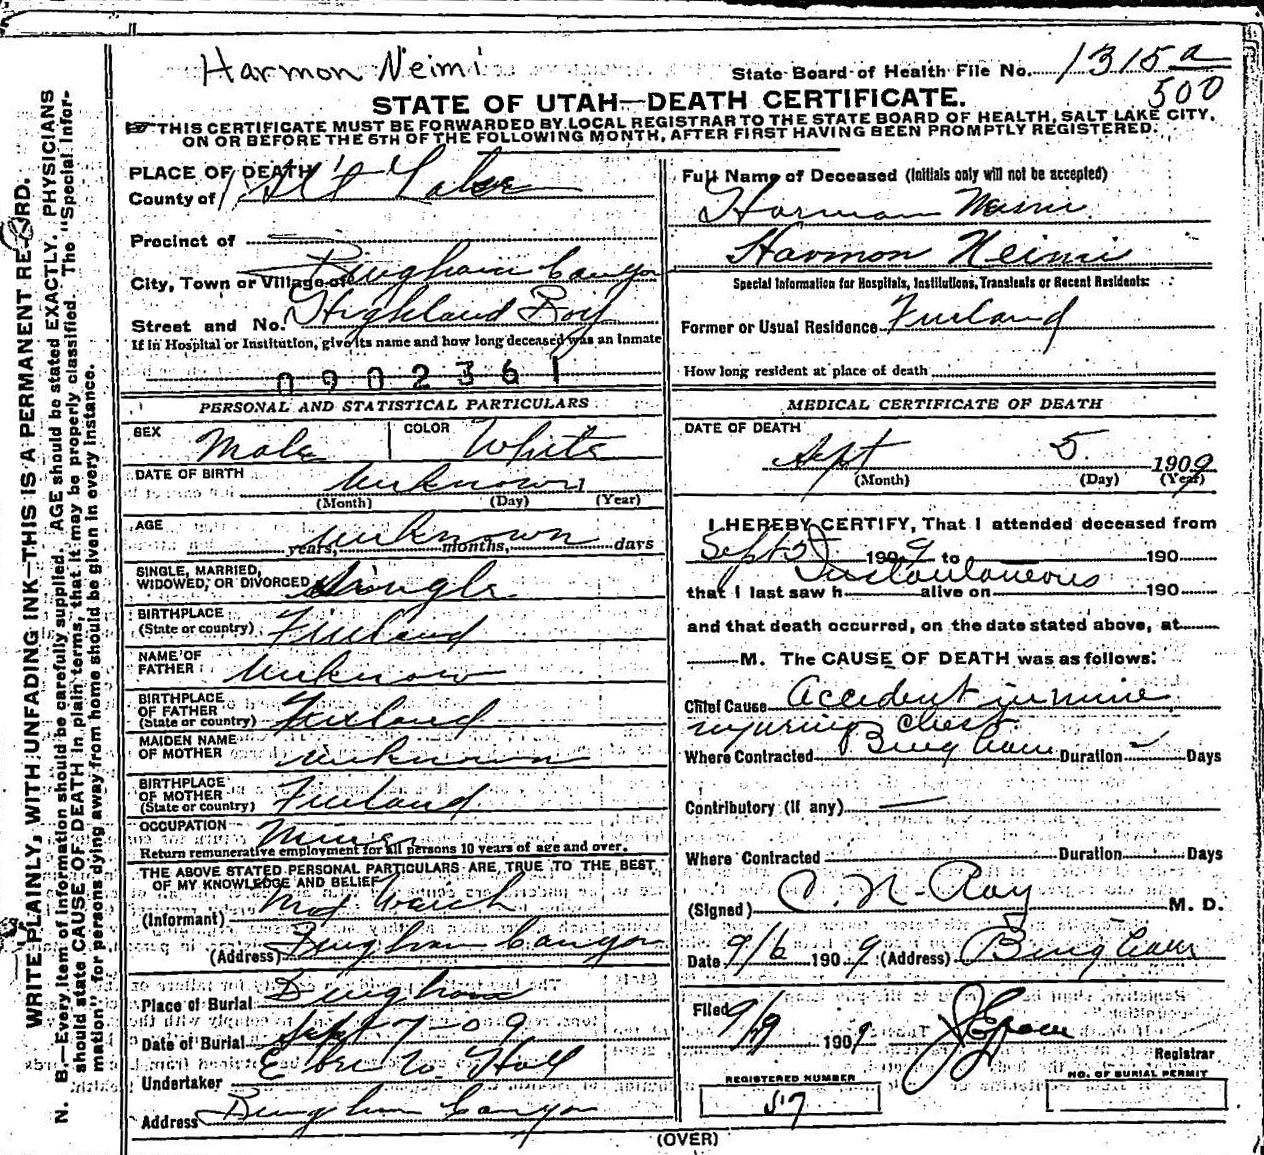 Harmon Neimi
State Board of Health File No. 1315 a
500
STATE OF UTAH—DEATH CERTIFICATE.
THIS CERTIFICATE MUST BE FORWARDED BY LOCAL REGISTRAR TO THE STATE BOARD OF HEALTH, SALT LAKE CITY,
ON OR BEFORE THE 5TH OF THE FOLLOWING MONTH, AFTER FIRST HAVING BEEN PROMPTLY REGISTERED.
WRITE PLAINLY, WITH UNFADING INK—THIS IS A PERMANENT RECORD.
N. B.—Every item of information should be carefully supplied. AGE should be stated EXACTLY. PHYSICIANS
should state CAUSE OF DEATH in plain terms, that it may be properly classified. The "Special Infor-
mation" for persons dying away from home should be given in every instance.
PLACE OF DEATH
County of Salt Lake
Precinct of
City, Town or Village of Bingham Canyon
Street and No. Highland Boy
If in Hospital or Institution, give its name and how long deceased was an inmate
0902361
PERSONAL AND STATISTICAL PARTICULARS
SEX Male COLOR White
DATE OF BIRTH unknown
(Month) (Day) (Year)
AGE unknown
years, months, days
SINGLE, MARRIED,
WIDOWED, OR DIVORCED Single
BIRTHPLACE
(State or country) Finland
NAME OF
FATHER Unknown
BIRTHPLACE
OF FATHER
(State or country) Finland
MAIDEN NAME
OF MOTHER unknown
BIRTHPLACE
OF MOTHER
(State or country) Finland
OCCUPATION Miner
Return remunerative employment for all persons 10 years of age and over.
THE ABOVE STATED PERSONAL PARTICULARS ARE TRUE TO THE BEST
OF MY KNOWLEDGE AND BELIEF
(Informant)
(Address) Bingham Canyon
Place of Burial Bingham
Date of Burial Sept 7-09
Undertaker
Address Bingham Canyon
Full Name of Deceased (Initials only will not be accepted)
Harman
Harmon Neimi
Special Information for Hospitals, Institutions, Transients or Recent Residents:
Former or Usual Residence Finland
How long resident at place of death
MEDICAL CERTIFICATE OF DEATH
DATE OF DEATH
Sept 5 1909
(Month) (Day) (Year)
I HEREBY CERTIFY, That I attended deceased from
Sept 5 1909 to 190
Instantaneous
that I last saw h alive on 190
and that death occurred, on the date stated above, at
M. The CAUSE OF DEATH was as follows:
Chief Cause Accident in mine
injuring chest
Where Contracted Bingham Duration Days
Contributory (If any) —
Where Contracted Duration Days
(Signed) C. N. Ray M. D.
Date 9/6 1909 (Address) Bingham
Filed 9/29 1909
Registrar
REGISTERED NUMBER
57
NO. OF BURIAL PERMIT
(OVER)